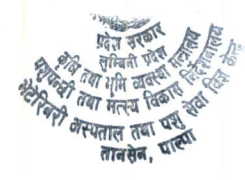 प्रदेश सरकार
लुम्बिनी प्रदेश
कृषि तथा भूमि व्यवस्था मन्त्रालय
पशुपन्छी तथा मत्स्य विकास निर्देशनालय
भेटेरिनरी अस्पताल तथा पशु सेवा विज्ञ केन्द्र
तानसेन, पाल्पा